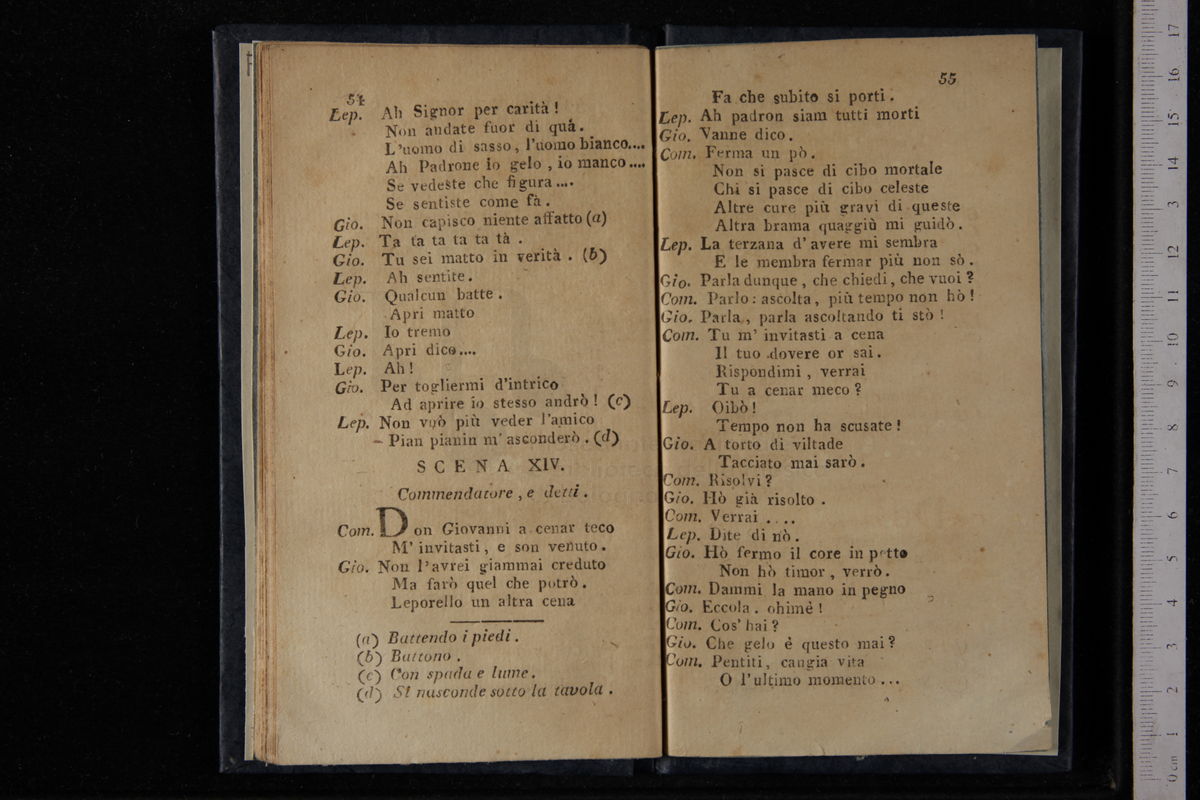 54
Lep. Ah Signor per carità !
Non andate fuor di quà.
L'uomo di sasso, l'uomo bianco....
Ah Padrone io gelo, io manco....
Se vedeste che figura....
Se sentiste come fà.
Gio. Non capisco niente affatto (a)
Lep. Ta ta ta ta ta tà.
Gio. Tu sei matto in verità. (b)
Lep. Ah sentite.
Gio. Qualcun batte.
Apri matto
Lep. Io tremo
Gio. Apri dico....
Lep. Ah !
Gio. Per togliermi d'intrico
Ad aprire io stesso andrò ! (c)
Lep. Non vuò più veder l'amico
Pian pianin m'asconderò. (d)
SCENA XIV.
Commendatore, e detti.
Com. Don Giovanni a cenar teco
M'invitasti, e son venuto.
Gio. Non l'avrei giammai creduto
Ma farò quel che potrò.
Leporello un altra cena
(a) Battendo i piedi.
(b) Battono.
(c) Con spada e lume.
(d) Si nasconde sotto la tavola.
55
Fa che subito si porti.
Lep. Ah padron siam tutti morti
Gio. Vanne dico.
Com. Ferma un pò.
Non si pasce di cibo mortale
Chi si pasce di cibo celeste
Altre cure più gravi di queste
Altra brama quaggiù mi guidò.
Lep. La terzana d'avere mi sembra
E le membra fermar più non sò.
Gio. Parla dunque, che chiedi, che vuoi ?
Com. Parlo : ascolta, più tempo non hò !
Gio. Parla, parla ascoltando ti stò !
Com. Tu m'invitasti a cena
Il tuo dovere or sai.
Rispondimi, verrai
Tu a cenar meco ?
Lep. Oibò !
Tempo non ha scusate !
Gio. A torto di viltade
Tacciato mai sarò.
Com. Risolvi ?
Gio. Hò già risolto.
Com. Verrai ....
Lep. Dite di nò.
Gio. Hò fermo il core in petto
Non hò timor, verrò.
Com. Dammi la mano in pegno
Gio. Eccola. ohimè !
Com. Cos'hai ?
Gio. Che gelo è questo mai ?
Com. Pentiti, cangia vita
O l'ultimo momento ...
0 cm 1 2 3 4 5 6 7 8 9 10 11 12 13 14 15 16 17